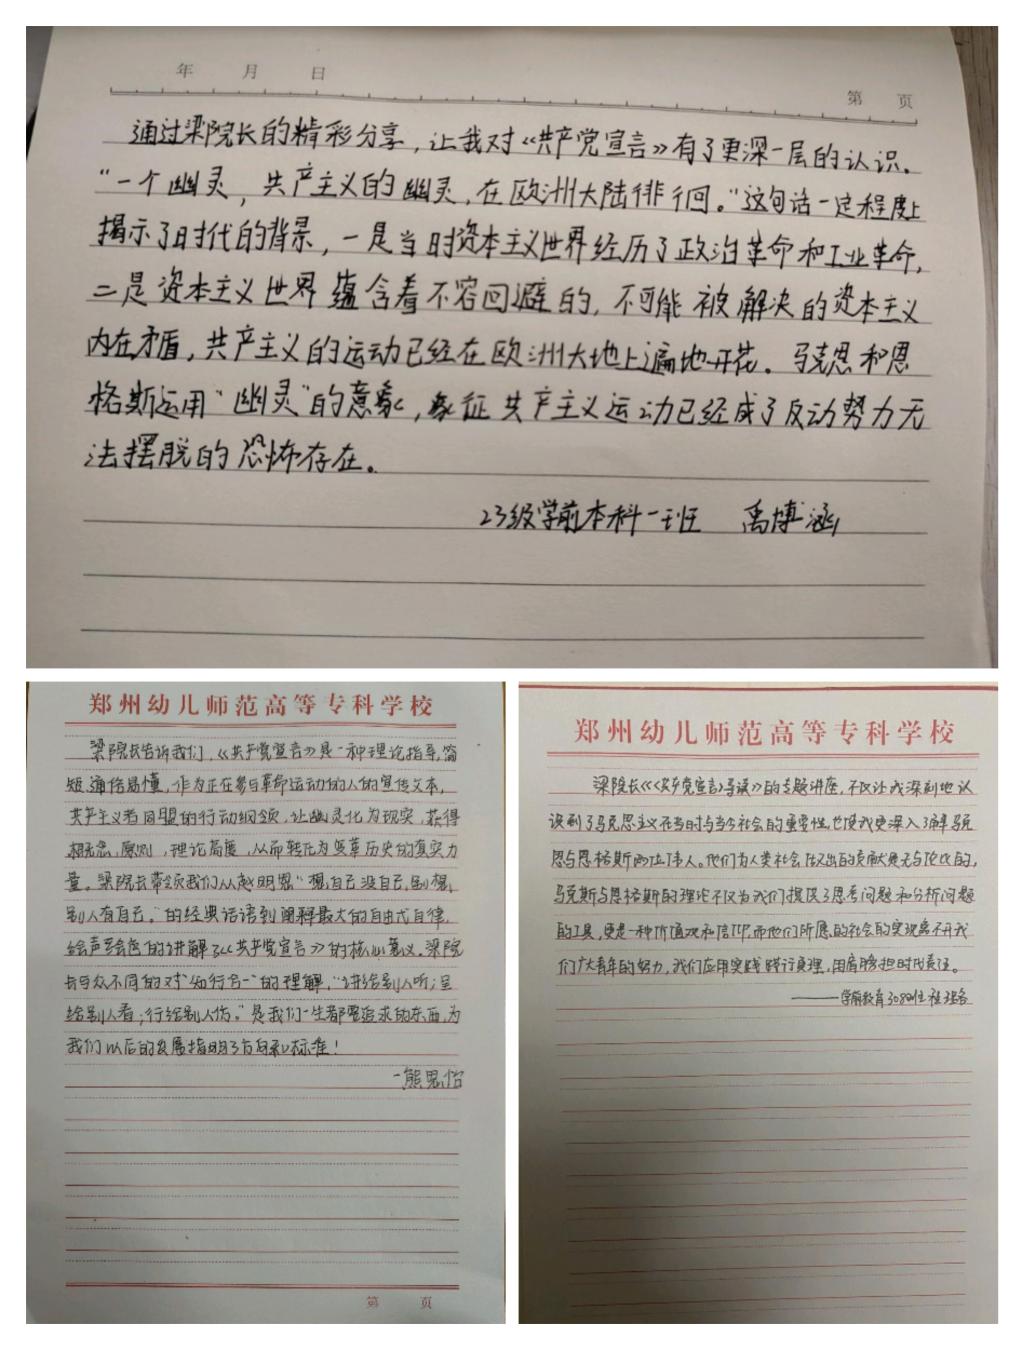 年 月 日
第 页
通过梁院长的精彩分享，让我对《共产党宣言》有了更深一层的认识。
“一个幽灵，共产主义的幽灵，在欧洲大陆徘徊。”这句话一定程度上
揭示了时代的背景，一是当时资本主义世界经历了政治革命和工业革命，
二是资本主义世界蕴含着不容回避的，不可能被解决的资本主义
内在矛盾，共产主义的运动已经在欧洲大地上遍地开花。马克思和恩
格斯运用“幽灵”的意象，象征共产主义运动已经成了反动势力无
法摆脱的恐怖存在。
23级学前本科一班 禹博涵
郑州幼儿师范高等专科学校
梁院长告诉我们，《共产党宣言》是一种理论指导，简
短、通俗易懂，作为正在参与革命运动的人的宣传文本，
共产主义者同盟的行动纲领，让幽灵化为现实，获得
概念、原则，理论高度，从而转化为变革历史的真实力
量。梁院长带领我们从赵明恩“想自己没自己，别想
别人有自己。”的经典话语到阐释最大的自由式自律，
绘声绘色的讲解了《共产党宣言》的核心要义。梁院
长与众不同的对“知行合一”的理解，“讲给别人听；呈
给别人看；行给别人仿。”是我们一生都要追求的东西，为
我们以后的发展指明了方向和标准！
一熊思怡
第 页
郑州幼儿师范高等专科学校
梁院长《《共产党宣言》导读》的专题讲座，不仅让我深刻地认
识到了马克思主义在当时与当今社会的重要性，也使我更深入了解马克
思与恩格斯两位伟人。他们为人类社会做出的贡献是无与伦比的，
马克斯与恩格斯的理论不仅为我们提供了思考问题和分析问题
的工具，更是一种价值观和信仰，而他们所展的社会的实现离不开我
们广大青年的努力，我们应用实践践行真理，用肩膀担时代责任。
——学前教育308班